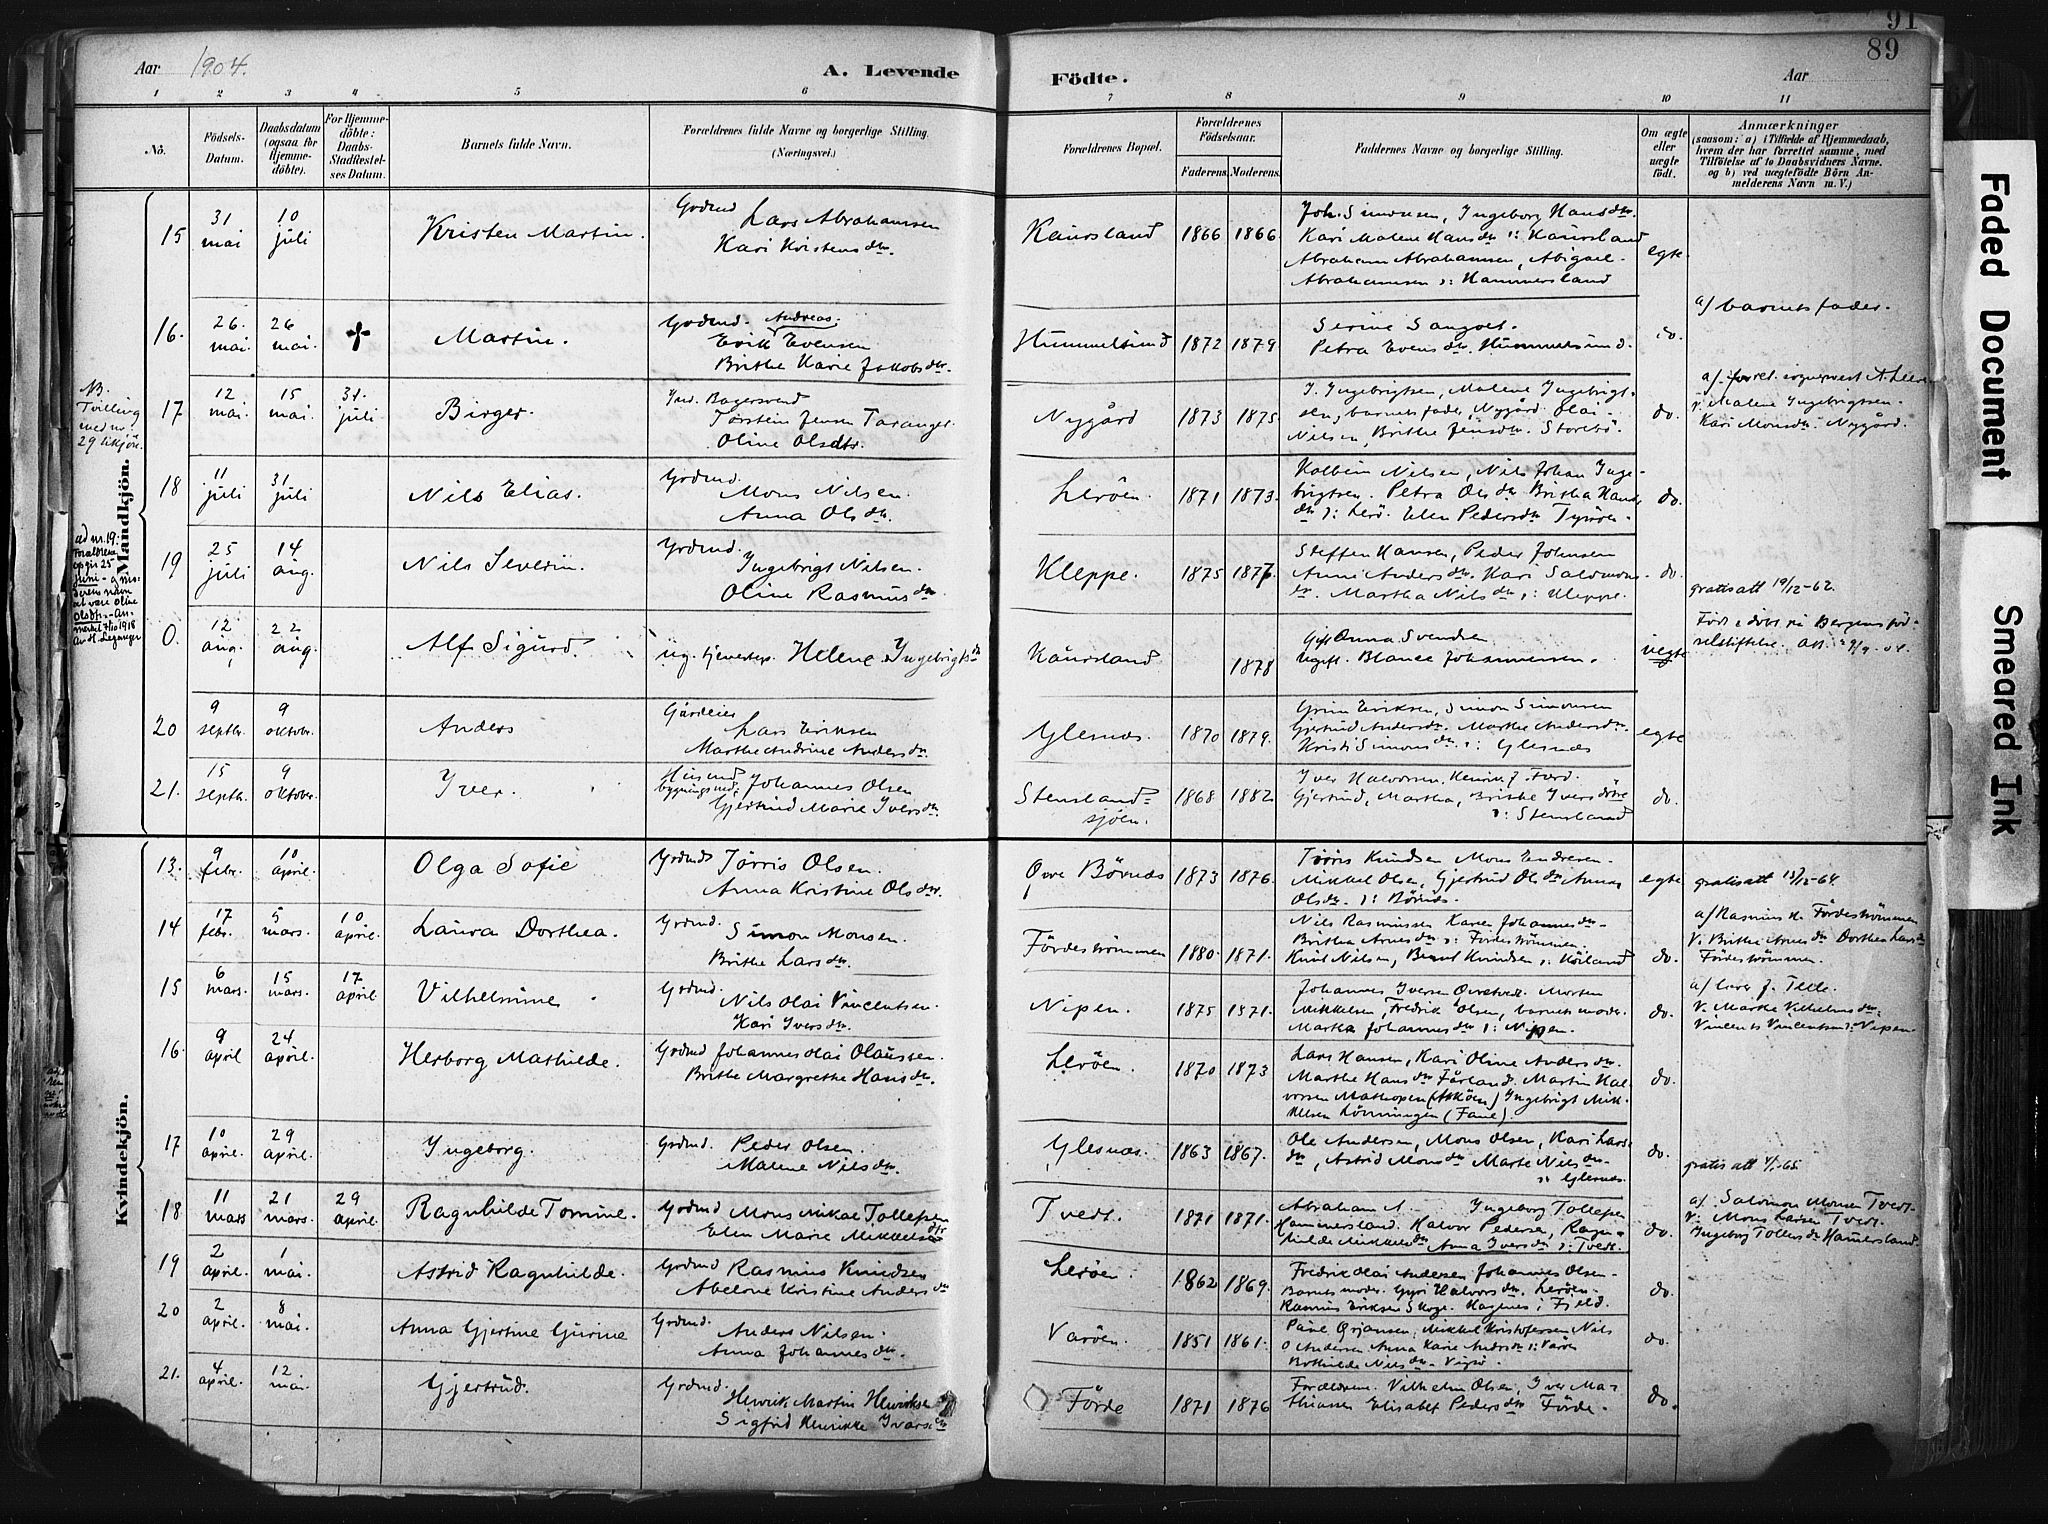 91
89
Aar 1904.
A. Levende Födte.
Aar
1 2 3 4 5 6 7 8 9 10 11
No.
Födsels-Datum.
Daabsdatum (ogsaa for Hjemmedöbte).
For Hjemmedöbte: Daabs-Stadfæstelses Datum.
Barnets fulde Navn.
Forældrenes fulde Navne og borgerlige Stilling. (Næringsvei.)
Forældrenes Bopæl.
Forældrenes Födselsaar.
Faderens. Moderens.
Faddernes Navne og borgerlige Stilling.
Om ægte eller uægte födt.
Anmærkninger
(saasom: a) i Tilfælde af Hjemmedaab, hvem der har forrettet samme, med Tilföielse af to Daabsvidners Navne. og b) ved uægtefödte Börn Anmelderens Navn m. V.)
Mandkjön.
15 31 mai 10 juli Kristen Martin. Grdmd Lars Abrahamsen Kari Kristensdtr. Kaursland 1866 1866.
Joh. Simonsen, Ingeborg Hansdtr.
Kari Malene Hansdtr : Kaursland
Abraham Abrahamsen, Abigael
Abrahamsen : Hammersland
egte.
16. 26. mai. 26 mai. ✝ Martin. Grdmd. Andreas. Erik Evensen Brithe Karie Jakobsdtr. Hummelsund 1872 1879
Petra Evensdtr. Hummelsund.
do.
a/ barnets fader.
NB. Tvilling med nr. 29 likjön.
17 12 mai. 15 mai. 31. juli Birger. Ind. Bagersvend Torstein Jensen Taranger. Oline Olsdtr. Nygård 1873 1875.
J. Ingebrigtsen, Malene Ingebrigtsen, barnets fader, Nygård. Olai Nilsen, Brithe Jensdtr. Storebö
do.
Malene Ingebrigtsen. Kari Monsdtr. Nygård.
18 11 juli 31. juli Nils Elias. Grdmd. Mons Nilsen. Anna Olsdtr. Leröen. 1871 1873.
Kolbein Nilsen, Nils Johan Ingebrigtsen. Petra Olsdtr Britha Hansdtr : Lerö. Elen Pedersdtr Tysöen.
do.
ad nr. 19:
19 25 juli 14 aug. Nils Severin. Grdmd. Ingebrigt Nilsen. Oline Rasmusdtr. Kleppe. 1875 1877.
Steffen Hansen, Peder Johnsen
Anne Andersdtr. Kari Salomonsdtr. Martha Nilsdtr : Kleppe.
do.
gratisatt 19/12-62.
0. 12 aug. 22 aug. Alf Sigurd. ug. tjenestep. Helene Ingebrigtsdtr Kaursland 1878
Gift Anna Svendsen
Ugift. Blance Johannesen.
uegte
Födt & döbt på Bergens födselstiftelse.
20 9 septbr. 9 oktober. Anders Gårdeier Lars Eriksen Marthe Andrine Andersdtr. Glesnæs. 1870 1879.
Grim Eriksen, Simon Simonsen
Gjertrud Andersdtr. Marthe Andersdtr.
Kristi Simonsdtr : Glesnæs
egte
21. 15 septbr. 9 oktober. Iver. Husmd bygningsmd: Johannes Olsen Gjertrud Marie Iversdtr. Steinslandsjöen. 1868 1882
Iver Halvorsen, Henrik J. Förd.
Gjertrud, Martha, Brithe Iversdötre
: Stensland
do.
Kvindekjön.
13. 9 febr. 10 april. Olga Sofie Grdmd Törris Olsen. Anna Kristine Olsdtr. Övre Börnæs 1873 1876.
Törris Knudsen Mons Endresen.
Mikkel Olsen, Gjertrud Olsdtr Anna
Olsdtr. : Börnæs.
egte
gratisatt 13/12-64.
14 17 febr. 5 mars. 10 april. Laura Dorthea. Grdmd. Simon Monsen. Brithe Larsdtr. Fördeströmmen 1880. 1871.
Nils Rasmussen Karen Johannesdtr.
Britha Arnesdtr : Fördeströmmen.
Knut Nilsen, Bernt Knudsen : Höiland
do.
a/ Rasmus K. Fördeströmmen
V. Brithe Arnesdtr Dorthea Larsdtr
Fördeströmmen.
15 6 mars. 15 mars. 17 april. Vilhelmine Grdmd. Nils Olai Vincentsen. Kari Iversdtr. Nipen. 1875 1871.
Johannes Iversen Morten
Mikkelsen, Fredrik Olsen, barnets moder.
Martha Johannesdtr : Nipen.
do.
V. Marthe Vilhelmsdtr.
Vincents Vincentsen : Nipen
16. 9 april 24 april. Herborg Mathilde. Grdmd Johannes Olai Olaussen. Brithe Margrethe Hansdtr. Leröen. 1870 1873
Lars Hansen, Kari Oline Andersdtr.
Marthe Hansdtr Færland. Martin Halvorsen Mathopen (Asköen) Ingebrigt Mikkelsen Lönningen (Fane).
do.
17 10 april. 29 april. Ingeborg. Grdmd. Peder Olsen. Malene Nilsdtr. Glesnæs. 1863 1867.
Ole Andersen, Mons Olsen, Kari Larsdtr, Astrid Monsdtr Marte Nilsdtr.
: Glesnæs.
do.
gratis att 4/1-65.
18 11 mars 21 mars. 29 april. Ragnhilde Tomine. Grdmd Mons Mikal Tollefsen Elen Marie Mikkelsdtr Tvedt. 1871 1871.
Abraham A. Ingeborg Tollefsen
Hammersland. Halvor Pedersen, Ragnhilde Mikkelsdtr Anna Iversdtr : Tvedt.
do.
a/. Salomon Monsen Tvedt.
V. Mons Larsen Tvedt.
Ingeborg Tollefsdtr Hammersland.
19 2 april. 1 mai. Astrid Ragnhilde. Grdmd Rasmus Knudsen Abelone Kristine Andersdtr Leröen. 1862 1869.
Fredrik Olai Andersen Johannes Olsen.
Barnets moder. Guri Halvorsdtr. Leröen.
Rasmus Eriksen Skoge. Hagenes i Fjeld.
do.
20 2 april. 8 mai. Anna Gjertine Gurine Grdmd. Anders Nilsen. Anna Johannesdtr. Varöen. 1851 1861.
Paul Örjansen, Mikkel Kristofersen Nils
O Andersen Anna Karie Andrsdtr : Varöen
Bothilde Nilsdtr. Vigsö.
do.
21. 4 april. 12 mai. Gjertrud. Grdmd. Henrik Martin Henriksen Sigfrid Henrikke Ivarsdtr Förde 1871 1876
Forældrene. Vilhelm Olsen, Iver Mathiasen Elisabet Pedersdtr Förde.
do.
Faded Document
Smeared Ink